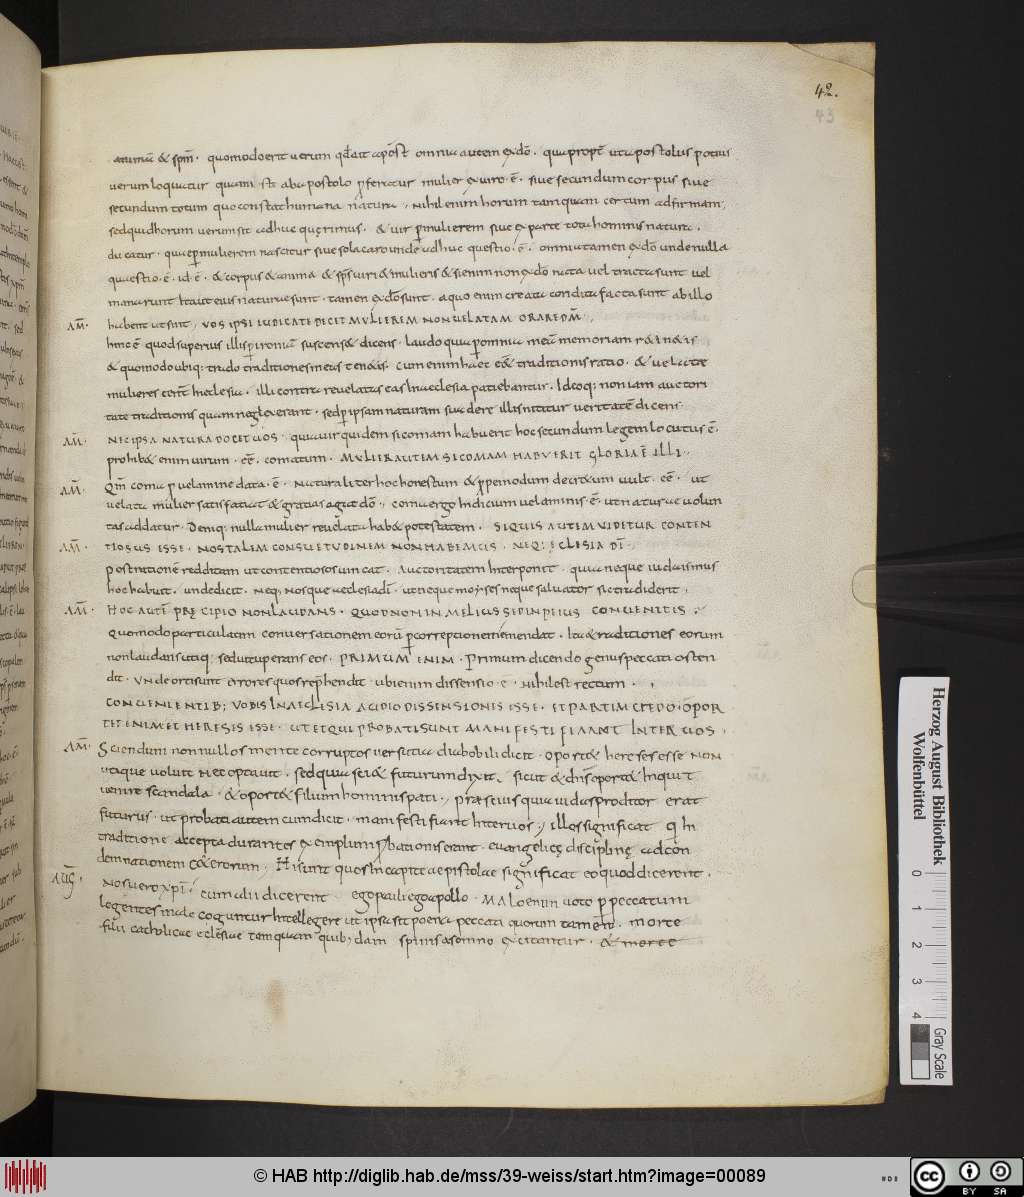 42.
43
animā & spm̄. quomodo erit uerum qđ ait apost̄ omnia autem ex dō. quapropt̄ ut apostolus potius
uerum loquatur quam st̄ ab apostolo p̱feratur mulier ex uiro .ē. siue secundum corpus siue
secundum totum quo constat humana natura, nihil enim horum tamquam certum adfirmam,
sed quid horum uerum sit adhuc quęrimus. & uir p̱ mulierem siue ex parte tota hominis natura.
ducatur. quia per mulierem nascitur siue sola caro unde adhuc questio .ē. omnia tamen ex dō unde nulla
quaestio .ē. id .ē. & corpus & anima & sps̄ uiri & mulieris & si enim non ex dō nata uel tracta sunt uel
manarunt ita ut eius naturae sunt. tamen ex dō sunt. a quo enim creata condita facta sunt ab illo
AM̄. habent ut sint, VOS IPSI IUDICATE DECET MVLIEREM NON UELATAM ORARE DM̄.,
hinc ē quod superius illis p̱ ironiam suscens& dicens. laudo quia p̱ omnia meā memoriam r&in&is
& quomodo ubiq: trado traditiones meas ten&is. cum enim haec ēē& traditionis ratio. & uelatae
mulieres ēent̄ in eclesia. illi contra reuelatas eas in aeclesia patiebantur. Ideoq: non iam auctori
tate traditionis quam neglexerant. sed p̱ ipsam naturam suadere illis nititur ueritatē dicens
AM̄. NEC IPSA NATURA DOCET UOS. quia uir quidem si comam habuerit hoc secundum legem locutus ē.
prohib& enim uirum .ēē. comatum. MVLIER AUTEM SI COMAM HABVERIT GLORIA Ē ILLI.
AM̄. Qm̄ coma p̱ uelamine data .ē. Naturaliter hoc honestum & p̱p̱ modum decreum uult .ēē. ut
uelata mulier satisfaciat & gratias agat dō., coma ergo Indicium uelaminis .ē. ut naturae uolun
tas addatur. Denīq: nulla mulier reuelata hab& potestatem. SI QUIS AUTEM VIDETUR CONTEN
AM̄. TIOSUS ESSE. NOS TALEM CONSUETUDINEM NON HABEMUS. NEQ: ECLESIA DĪ.
post rationē redditam ut contentiosos uincat. Auctoritatem Interponit. quia neque iudaismus
hoc habuit. unde dicit. neq: nos que aeclesia dī. ut neque moyses neque saluator sic tradiderit,
AM̄. HOC AUTĒ PRĘCIPIO NON LAUDANS. QUOD NON IN MELIUS SED IN PEIUS CONUENITIS.,
Quomodo particulatam conuersationem eorū p̱ correptionem emendat. Ita & traditiones eorum
non laudans utiq: sed uituperans eos. PRIMUM ENIM. Primum dicendo genus peccati osten
dit. Vnde orti sunt errores quos rep̱hendit. ubi enim dissensio ē. nihil est rectum.,
CONUENIENTIB: VOBIS IN AECLESIA AUDIO DISSENSIONES ESSE. ET PARTIM CREDO. OPOR
TET ENIM ET HERESIS ESSE. UT ET QUI PROBATI SUNT MANIFESTI FIANT INTER UOS.
AM̄. Sciendum non nullos mente corruptos uersutia diaboli dicit. oport& hereses esse NON
utique uoluit nec optauit. sed quia sci& futurum dixit. sicut & dn̄s oport& inquit
uenire scandala. & oport& filium hominis pati., Praescius quia iudas proditor erat
futurus. ut probati autem cum dicit. manifesti fiant Inter uos., illos significat q̱ In
traditione accepta durantes exemplum p̱bationis erant. euangelicę disciplinę ad con
demnationem c&erorum. Hi sunt quos In capite aepistolae significat eo quod dicerent.
AUḠ. NOS uero xpī. cum alii dicerent ego pauli ego apollo. MALo enim uoto p̱ peccatum
legentes male coguntur Intellegere ut ipsa sit poena peccati quorum tamen. morte
filii catholicae eclesiae tamquam quib; dam spinis a somno excitantur. & morte
Herzog August Bibliothek
Wolfenbüttel
0 1 2 3 4
Gray Scale
© HAB http://diglib.hab.de/mss/39-weiss/start.htm?image=00089
cc BY SA